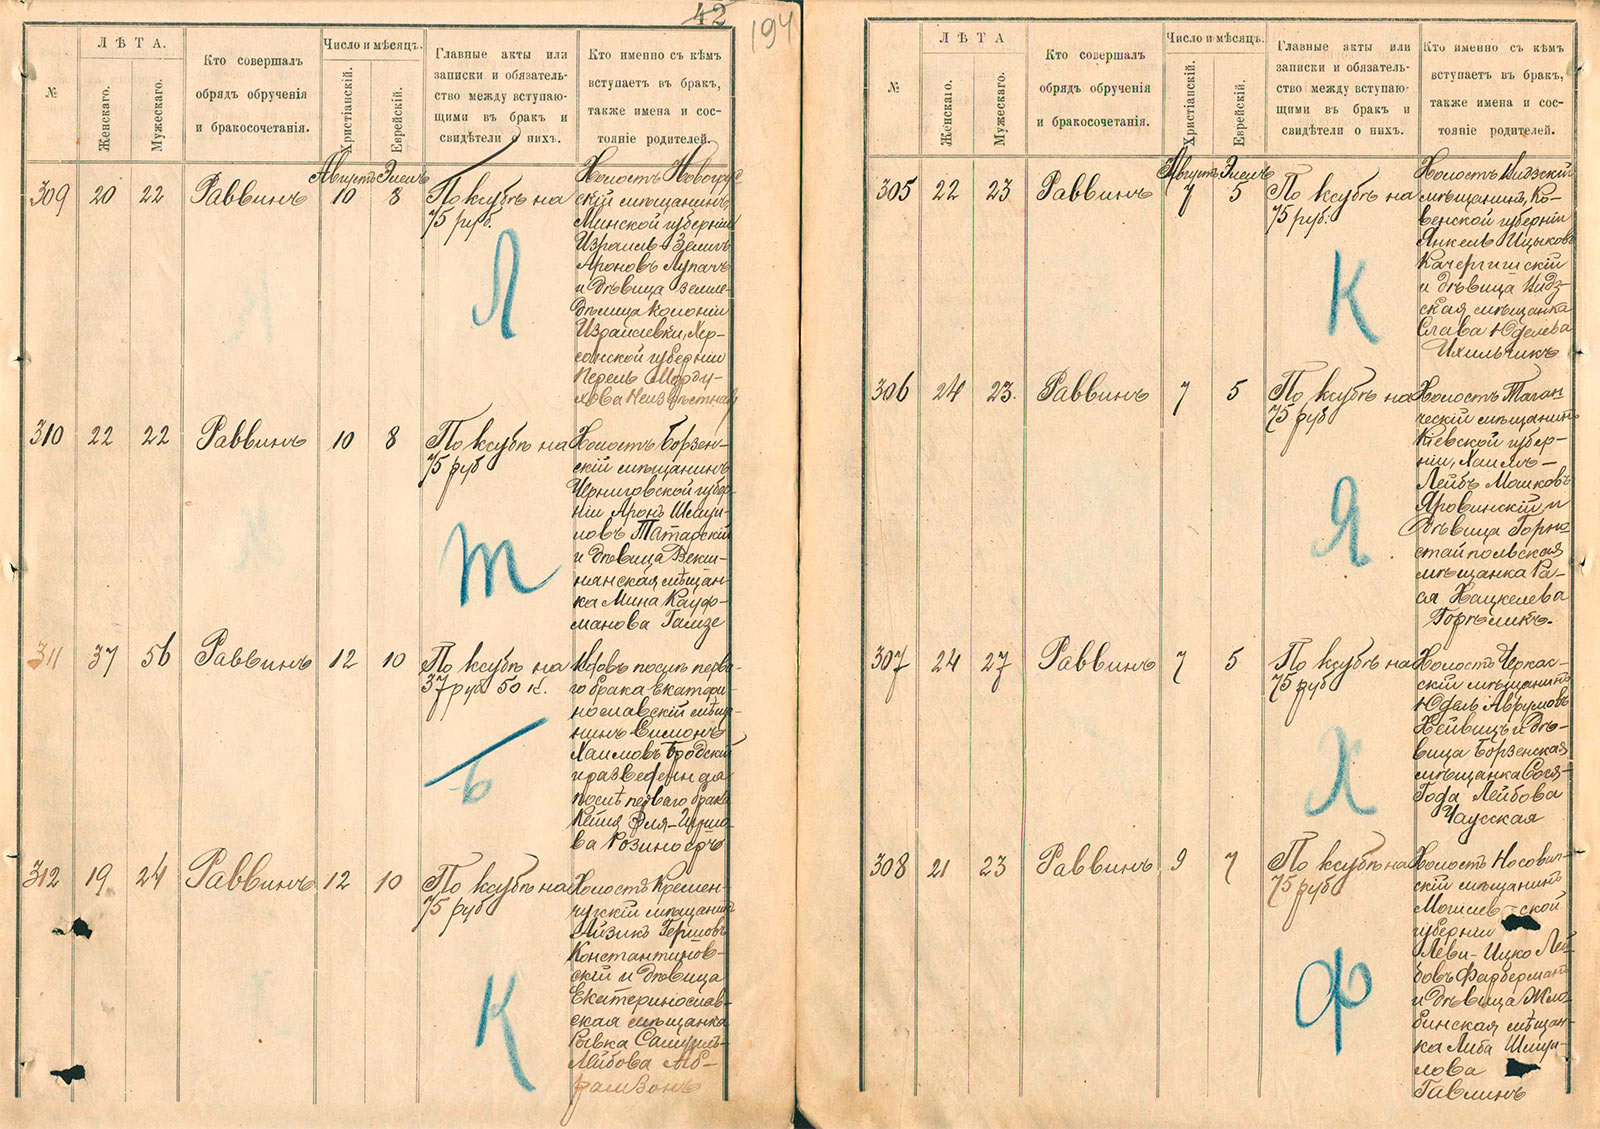 42
194
ЛѢТА.
Кто совершалъ
обрядъ обрученія
и бракосочетанія.
Число и мѣсяцъ.
Главные акты или
записки и обязатель-
ство между вступаю-
щими въ бракъ и
свидѣтели о нихъ.
Кто именно съ кѣмъ
вступаетъ въ бракъ,
также имена и сос-
тояніе родителей.
№
Женскаго.
Мужескаго.
Христіанскій.
Еврейскій.
Августъ Элелъ
309 20 22 Раввинъ 10 8
По ксубѣ на
75 руб.
Л
Холостъ Новогруд-
скій мѣщанинъ
Минской губерніи
Израиль-Зелигъ
Ароновъ Лупачъ
и дѣвица земле-
дѣлица колоніи
Израилевки, Хер-
сонской губерніи
Перель Морду-
хова Неизвѣстная
310 22 22 Раввинъ 10 8
По ксубѣ на
75 руб
Т
Холостъ Борзен-
скій мѣщанинъ
Черниговской губер-
ніи Аронъ Шмуи-
ловъ Татарскій
и дѣвица
мѣщан-
ка Мина Кауф-
манова Гамзе
311 37 56 Раввинъ 12 10
По ксубѣ на
37 руб 50 к.
Б
Вдовъ послѣ перва-
го брака Екатери-
нославскій мѣща-
нинъ Симонъ
Хаимовъ Бродскій
и разведенная
послѣ перваго брака
ва Розиноеръ
312 19 24 Раввинъ 12 10
По ксубѣ на
75 руб
К
Холостъ Кремен-
чугскій мѣщанинъ
Айзикъ Гершовъ
Константинов-
скій и дѣвица
Екатеринослав-
ская мѣщанка
Рывка Самуилъ-
Лейбова Аб-
рамзонъ
ЛѢТА
Кто совершалъ
обрядъ обрученія
и бракосочетанія.
Число и мѣсяцъ.
Главные акты или
записки и обязатель-
ство между вступаю-
щими въ бракъ и
свидѣтели о нихъ.
Кто именно съ кѣмъ
вступаетъ въ бракъ,
также имена и сос-
тояніе родителей.
№
Женскаго.
Мужескаго.
Христіанскій.
Еврейскій.
Августъ Элелъ
305 22 23 Раввинъ 7 5
По ксубѣ на
75 руб.
К
Холостъ Видзскій
мѣщанинъ, Ко-
венской губерніи
Янкель Ицыковъ
Качергишскій
и дѣвица Видз-
ская мѣщанка
Слава Юделева
Ихильчикъ
306 24 23. Раввинъ 7 5
По ксубѣ на
75 руб
Я
Холостъ Таган-
ческій мѣщанинъ
Кіевской губер-
ніи, Хаимъ-
Лейбъ Мошковъ
Яровинскій и
дѣвица Горно-
стайпольская
мѣщанка Ра-
ся Хацкелева
Горѣликъ.
307 24 27 Раввинъ 7 5
По ксубѣ на
75 руб
Х
Холостъ Черкас-
скій мѣщанинъ
Юдель Аврумовъ
Хейвицъ и дѣ-
вица Борзенская
мѣщанка Сося-
Года Лейбова
Чаусская
308 21 23 Раввинъ 9 7
По ксубѣ на
75 руб
Ф
Холостъ Носович-
скій мѣщанинъ
Могилев-ской
губерніи
Леви-Ицко Лей-
бовъ Фарберманъ
и дѣвица Жло-
бинская мѣщан-
ка Либа Шмуи-
лова
Гавлинъ